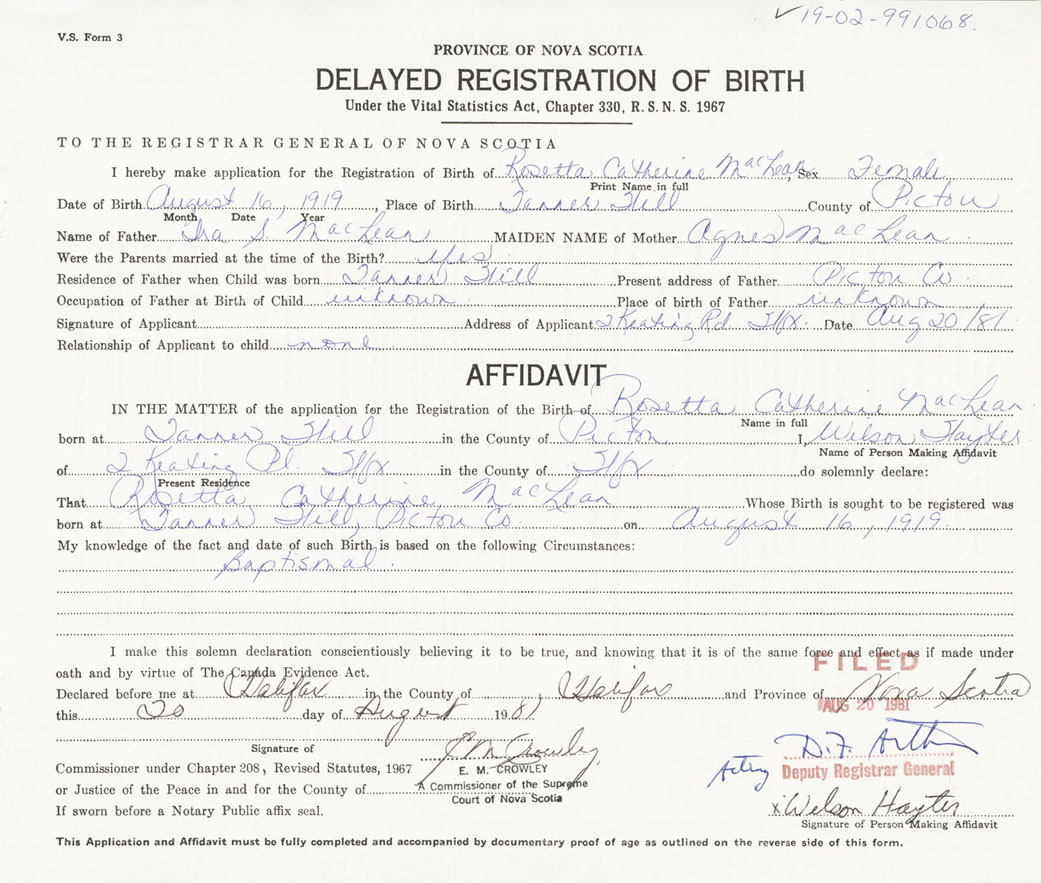 19-02-991068.
V.S. Form 3
PROVINCE OF NOVA SCOTIA
DELAYED REGISTRATION OF BIRTH
Under the Vital Statistics Act, Chapter 330, R. S. N. S. 1967
TO THE REGISTRAR GENERAL OF NOVA SCOTIA
I hereby make application for the Registration of Birth of Rosetta Catherine MacLean, Sex Female
Print Name in full
Date of Birth August 16, 1919, Place of Birth Tanner Hill County of Pictou
Month Date Year
Name of Father Ira S. MacLean MAIDEN NAME of Mother Agnes MacLean
Were the Parents married at the time of the Birth? yes
Residence of Father when Child was born Tanner Hill Present address of Father Pictou Co
Occupation of Father at Birth of Child unknown Place of birth of Father unknown
Signature of Applicant Address of Applicant 2 Keating Rd Hfx. Date Aug 20/81
Relationship of Applicant to child none
AFFIDAVIT
IN THE MATTER of the application for the Registration of the Birth of Rosetta Catherine MacLean
Name in full
born at Tanner Hill in the County of Pictou I, Wilson Hayter
Name of Person Making Affidavit
of 2 Keating Pl. Hfx in the County of Hfx do solemnly declare:
Present Residence
That Rosetta Catherine MacLean Whose Birth is sought to be registered was
born at Tanner Hill, Pictou Co on August 16, 1919
My knowledge of the fact and date of such Birth is based on the following Circumstances:
Baptismal
I make this solemn declaration conscientiously believing it to be true, and knowing that it is of the same force and effect as if made under
oath and by virtue of The Canada Evidence Act.
FILED
Declared before me at Halifax in the County of, Halifax and Province of Nova Scotia
this 20 day of August 1981
AUG 20 1981
Signature of E M Crowley
D.F. Arth
Commissioner under Chapter 208, Revised Statutes, 1967 E. M. CROWLEY
Acting Deputy Registrar General
or Justice of the Peace in and for the County of A Commissioner of the Supreme
Court of Nova Scotia
x Wilson Hayter
If sworn before a Notary Public affix seal.
Signature of Person Making Affidavit
This Application and Affidavit must be fully completed and accompanied by documentary proof of age as outlined on the reverse side of this form.